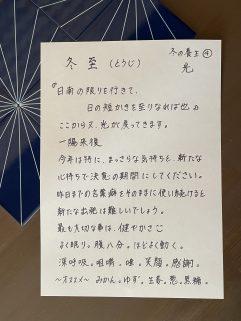 冬の養生④
冬至（とうじ）
光
『日南の限りを行て、
日の短かきを至りなれば也』
ここから又、光が戻ってきます。
一陽来復
今年は特に、まっさらな気持ちと、新たな
心持ちで決意の期間にしてください。
昨日までの言葉癖をそのままに使い続けると
新たな出発は難しいでしょう。
最も大切な事は、健やかさ
よく眠り。腹八分。ほどよく動く。
深呼吸。咀嚼。唾。笑顔。感謝。
〜オススメ〜 みかん。ゆず。生姜。葱。黒糖。